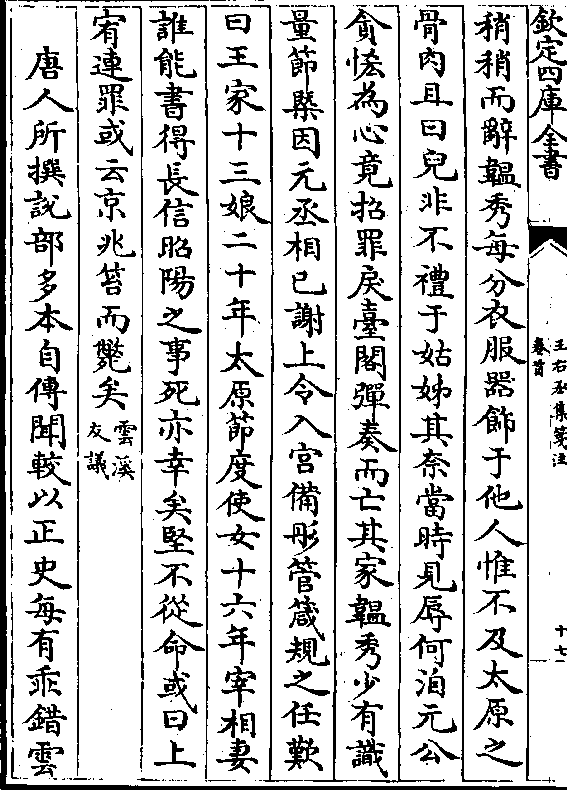 欽定四庫全書
王右丞集箋注
卷首
十七
稍稍而辭韞秀每分衣服器飾于他人惟不及太原之
骨肉且曰兒非不禮于姑姊其奈當時見辱何洎元公
貪恡為心竟招罪戾臺閣彈奏而亡其家韞秀少有識
量節槩因元丞相已謝上令入宫備彤管箴規之任歎
曰王家十三娘二十年太原節度使女十六年宰相妻
誰能書得長信昭陽之事死亦幸矣堅不從命或曰上
宥連罪或云京兆笞而斃矣雲溪友議
唐人所撰説部多本自傳聞較以正史每有乖錯雲